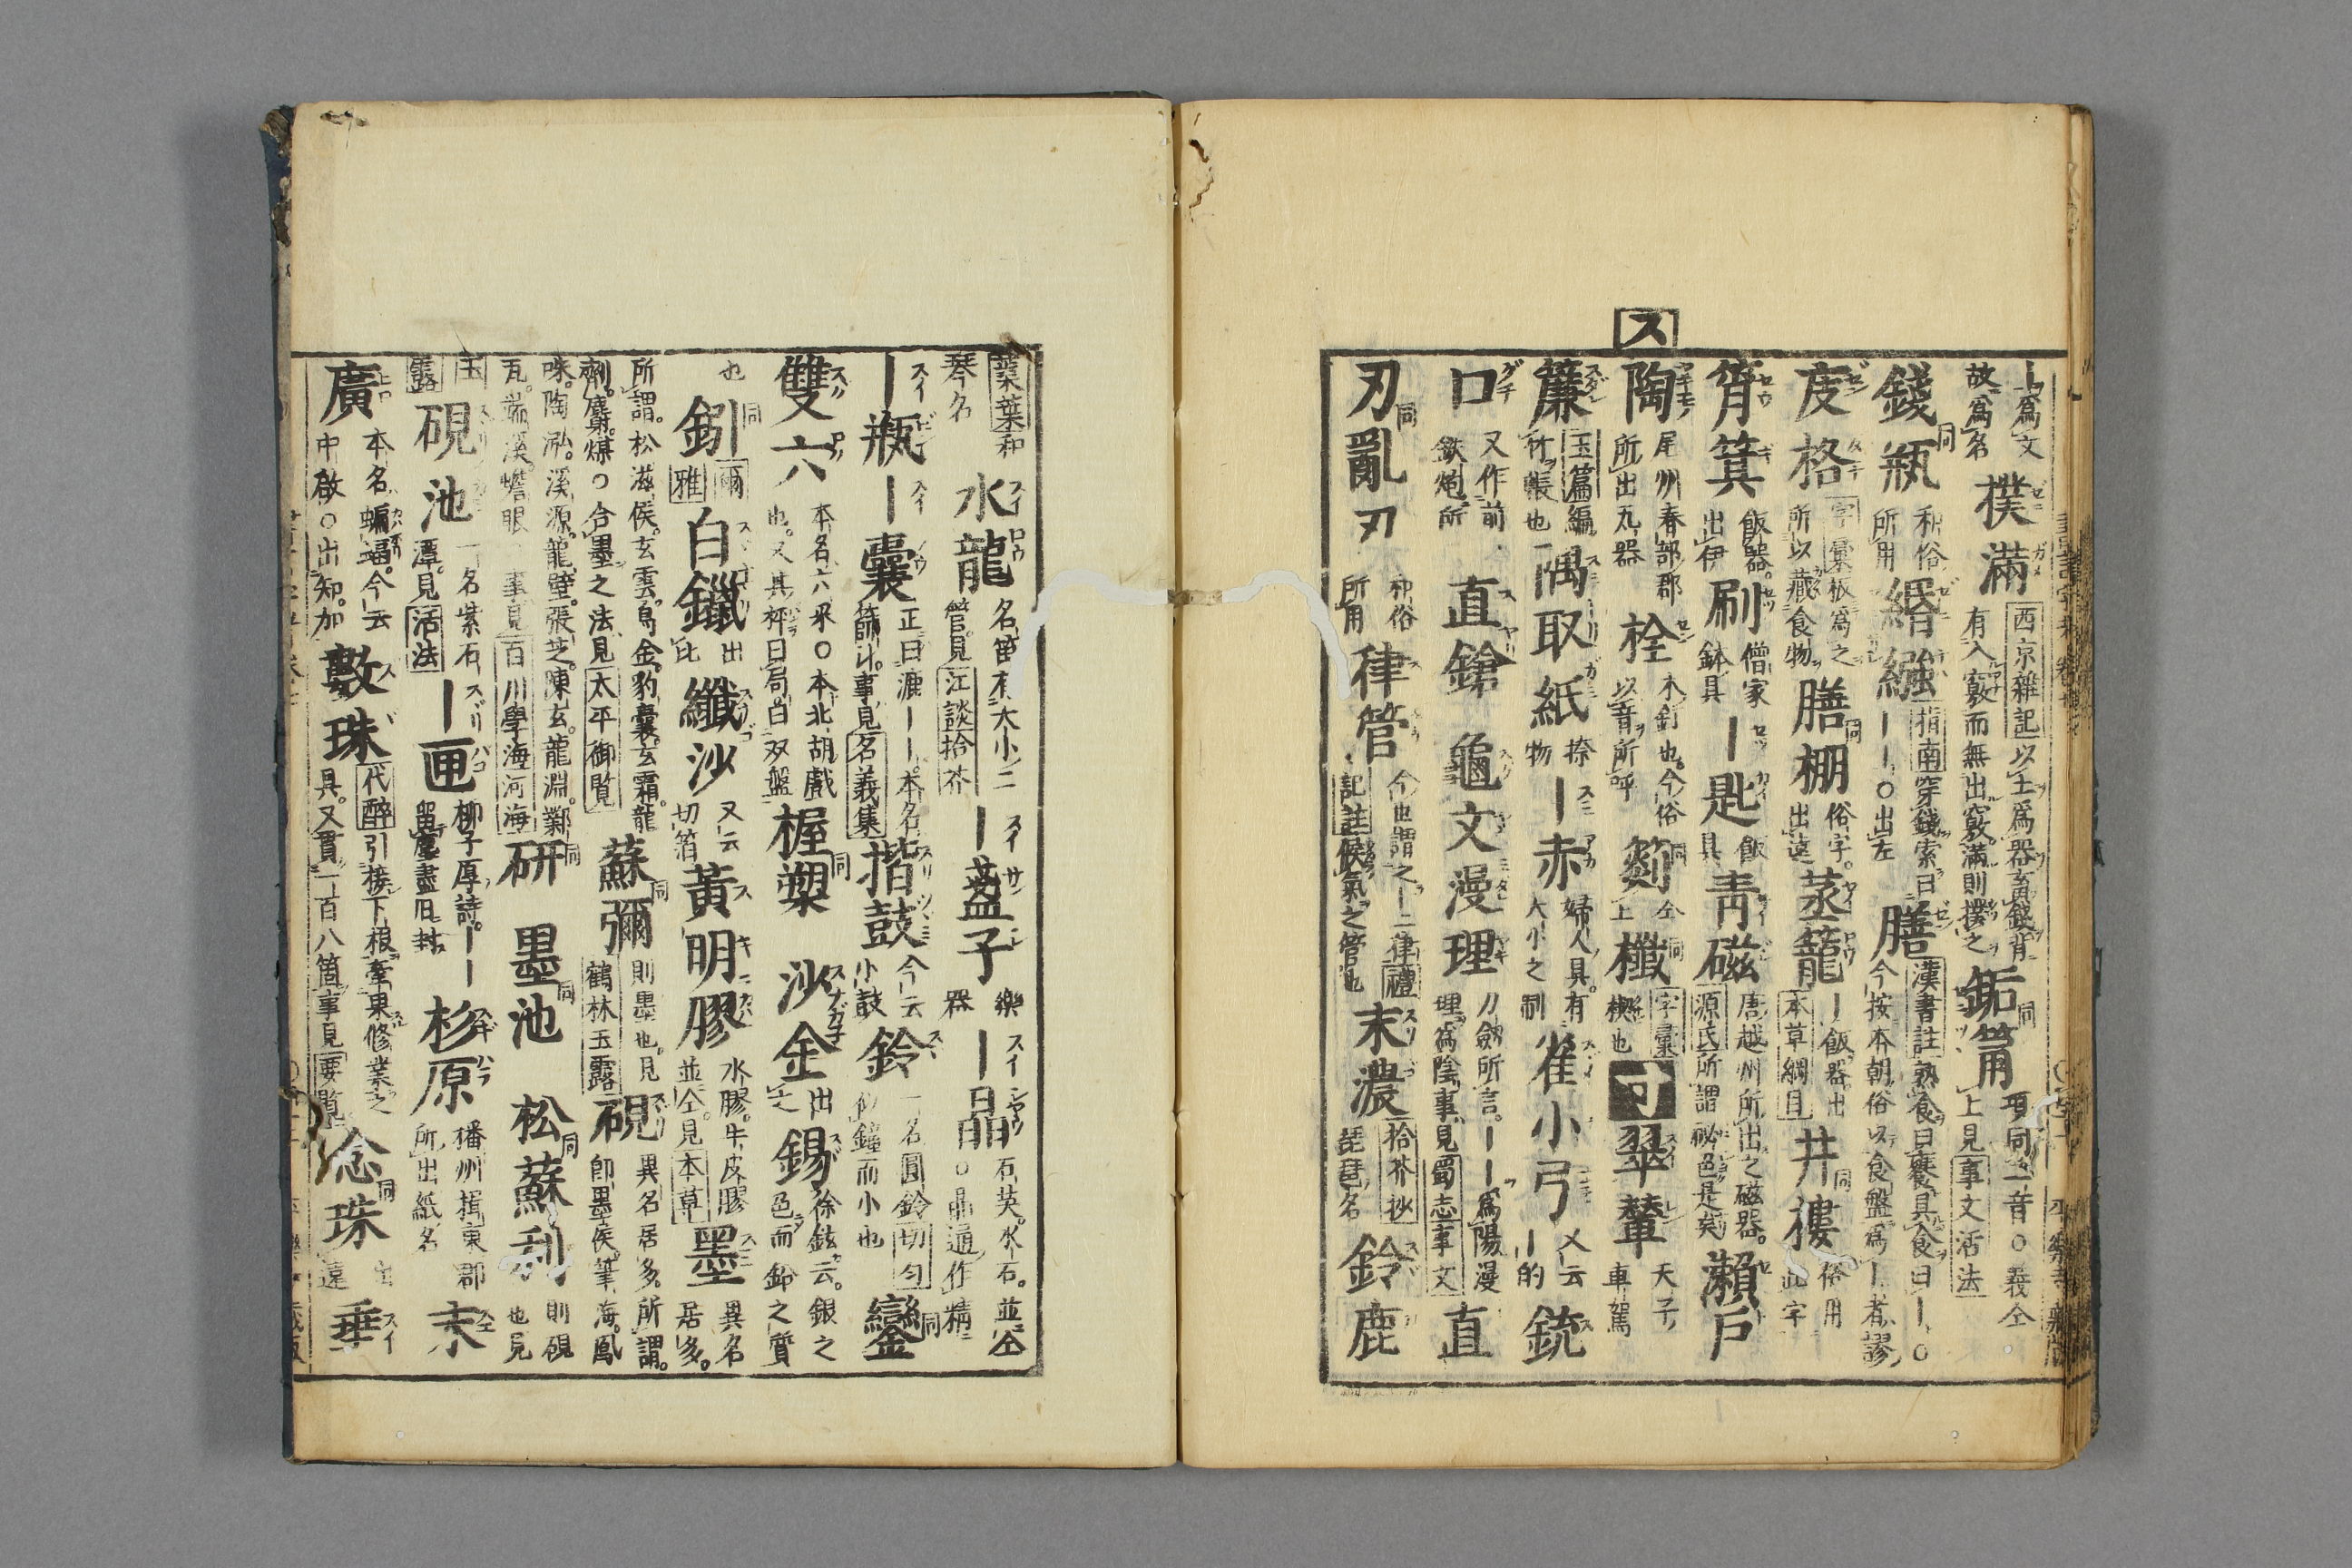 ス
故爲名 撲滿 西京雜記以土爲器畜錢背有入竅而無出竅滿則撲之 銗筩 項同二音○義仝上見事文活法
錢瓶 同 和俗所用 緡繦 指南穿錢索曰――○出左 膳 漢書註熟食曰饔具食曰―○今按本朝俗以食盤爲―者謬
度格 字彙板爲之所以藏食物 膳棚 同 俗字出遠 蒸籠 ―飯器出本草綱目 井樓 同 俗用此字
筲箕 飯器出伊 刷 僧家鉢具 ―匙 飯具 靑磁 唐越州所出之磁器源氏所謂祕色是矣 瀨戸
陶 尾州春部郡所出瓦器 栓 木釘也今俗以音所呼 劒 同 仝上 櫼 同 字彙楔也 可 翠輦 天子車駕
簾 玉篇編竹帳也 隅取紙 捺物 ―赤 婦人具有大小之制 雀小弓 又云―的 銃
口 又作前鉄炮所 直鎗 龜文漫理 刀劒所言――爲陽漫理爲陰事見蜀志事文 直
刃 同 亂刃 和俗所用 律管 今也謂之十二律禮記註候氣之管也 末濃 拾芥抄琵琶名 鈴鹿
葉和琴名 水龍 名笛有大小二管見江談拾芥 ―盞子 樂器 ―晶 石英水石並仝○晶通作精
―瓶 ―囊 正曰漉――本名篩汁事見名義集 揩鼓 今云小鼓 鈴 一名圓鈴切勻似鐘而小也 鑾 同
雙六 本名六采○本北胡戲也又其枰曰局曰双盤 握槊 同 沙金 出 錫 徐鉉云銀之色而鉛之質
也 鈏 同 爾雅 白鑞 出比 纖沙 又云切箔 黃明膠 水膠牛皮膠並仝見本草 墨 異名居多
所謂松滋侯玄雲烏金豹囊玄霜龍劑麝煤○合墨之法見太平御覧 蘇彌 同 則墨也見鶴林玉露 硯 異名居多所謂卽墨侯筆海鳳
咮陶泓溪源龍壁張芝陳玄龍淵鄴瓦端溪蟾眼 事見百川學海河海 研 同 墨池 同 松蘇利 同 則硯也見
玉露 硯池 一名紫石潭見活法 ―匣 柳子厚詩――留塵盡旧封 杉原 播州揖東郡所出紙名 末
廣 本名蝙蝠今云中啟○出知加 數珠 代醉引接下根牽果修業之具又貫一百八箇事見要覧 念珠 同 出遠 垂